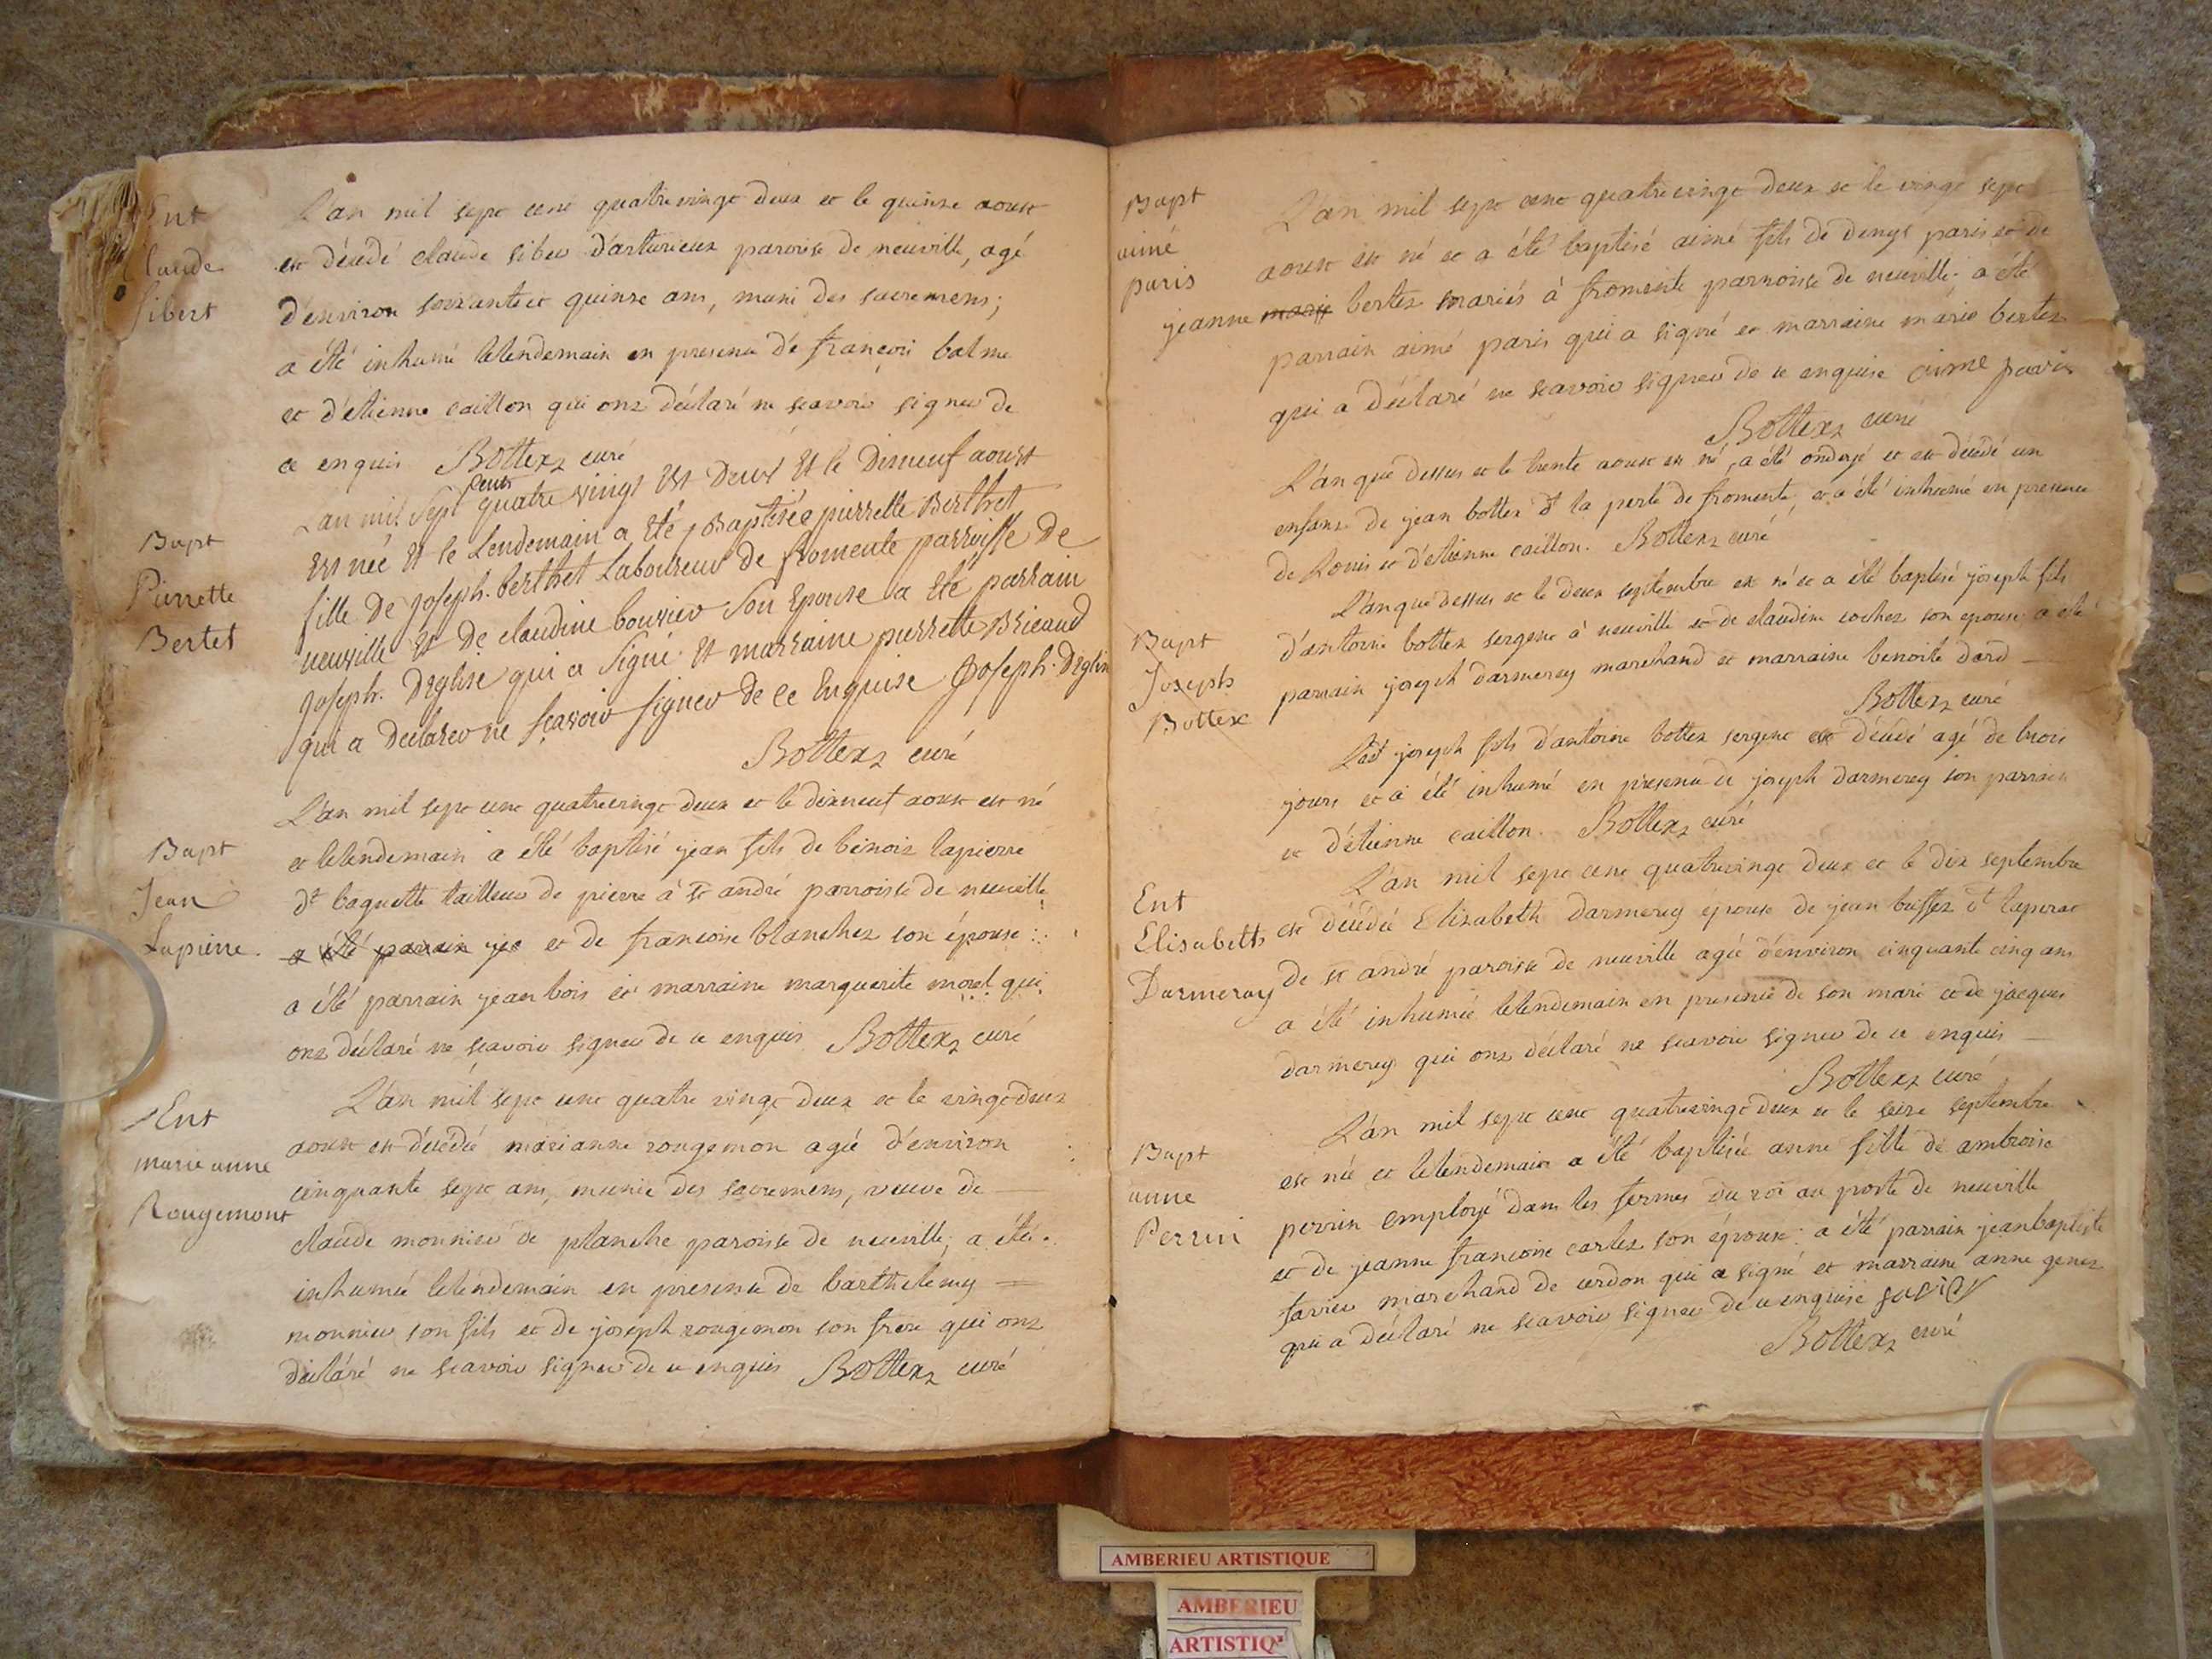 Ent
Claude
Sibert
L'an mil sept cent quatrevingt deux et le quinze aoust
est décédé claude siber d'arturieux paroisse de neuville, agé
d'environ soixante et quinze ans, muni des sacremens;
a été inhumé lelendemain en presence de françois balme
et d'etienne caillon qui ont déclaré ne scavoir signer de
ce enquis Bottex curé
Bapt
Pierrette
Bertet
L'an mil sept cent quatre vingt et deux et le dixneuf aoust
est née et le lendemain a été Baptisée pierrette Berthet
fille de joseph berthet Laboureur de fromente parroisse de
neuville et de claudine bouvier son Epouse a été parrain
joseph Déglise qui a signé et marraine pierrette Bricaud
qui a declarer ne scavoir signer de ce Enquise Joseph Deglise
Bottex curé
Bapt
Jean
Lapierre
L'an mil sept cent quatrevingt deux et le dixneuf aoust est né
et lelendemain a été baptisé jean fils de benoit lapierre
dt baguette tailleur de pierre à st andré parroisse de neuville
a été parrain jea et de francoise blanchet son épouse :
a été parrain jean bois et marraine marguerite morel qui
ont déclaré ne scavoir signer de ce enquis Bottex curé
Ent
marie anne
Rougemont
L'an mil sept cent quatre vingt deux et le vingt deux
aoust est décédée marianne rougemon agée d'environ
cinquante sept ans, munie des sacremens, veuve de
claude monnier de planche paroisse de neuville, a été
inhumée lelendemain en presence de barthelemy
monnier son fils et de joseph rougemon son frere qui ont
déclaré ne scavoir signer de ce enquis Bottex curé
Bapt
aimé
paris
L'an mil sept cent quatrevingt deux et le vingt sept
aoust est né et a été baptisé aimé fils de denys paris et de
jeanne marie bertet mariés à fromente parroisse de neuville, a été
parrain aimé paris qui a signé et marraine marie bertet
qui a déclaré ne scavoir signer de ce enquise aimé paris
Bottex curé
L'an que dessus et le trente aoust est né, a été ondoyé et est décédé un
enfant de jean bottex dt la perle de fromente, et a été inhumé en presence
de Louis et d'etienne caillon. Bottex curé
Bapt
Joseph
Bottex
L'an que dessus et le deux septembre est né et a été baptisé joseph fils
d'antoine bottex sergent à neuville et de claudine cochet son epouse a été
parrain joseph darmerey marchand et marraine benoite dard
Bottex curé
Led joseph fils d'antoine bottex sergent est décédé agé de trois
jours et a été inhumé en presence de joseph darmerey son parrain
et d'étienne caillon. Bottex curé
Ent
Elisabeth
Darmeray
L'an mil sept cent quatrevingt deux et le dix septembre
est décédée Elizabeth darmerey épouse de jean buffet dt laperac
de st andré paroisse de neuville agée d'environ cinquante cinq ans
a été inhumée lelendemain en presence de son mari et de jacques
darmerey qui ont déclaré ne scavoir signer de ce enquis
Bottex curé
Bapt
anne
Perrin
L'an mil sept cent quatrevingt deux et le seize septembre
est née et lelendemain a été baptisée anne fille de ambroise
perrin employé dans les fermes du roi au poste de neuville
et de jeanne francoise cartet son épouse: a été parrain jeanbaptiste
favier marchand de cerdon qui a signé et marraine anne genet
qui a déclaré ne scavoir signer de ce enquise favier
Bottex curé
AMBERIEU ARTISTIQUE
AMBERIEU
ARTISTIQ